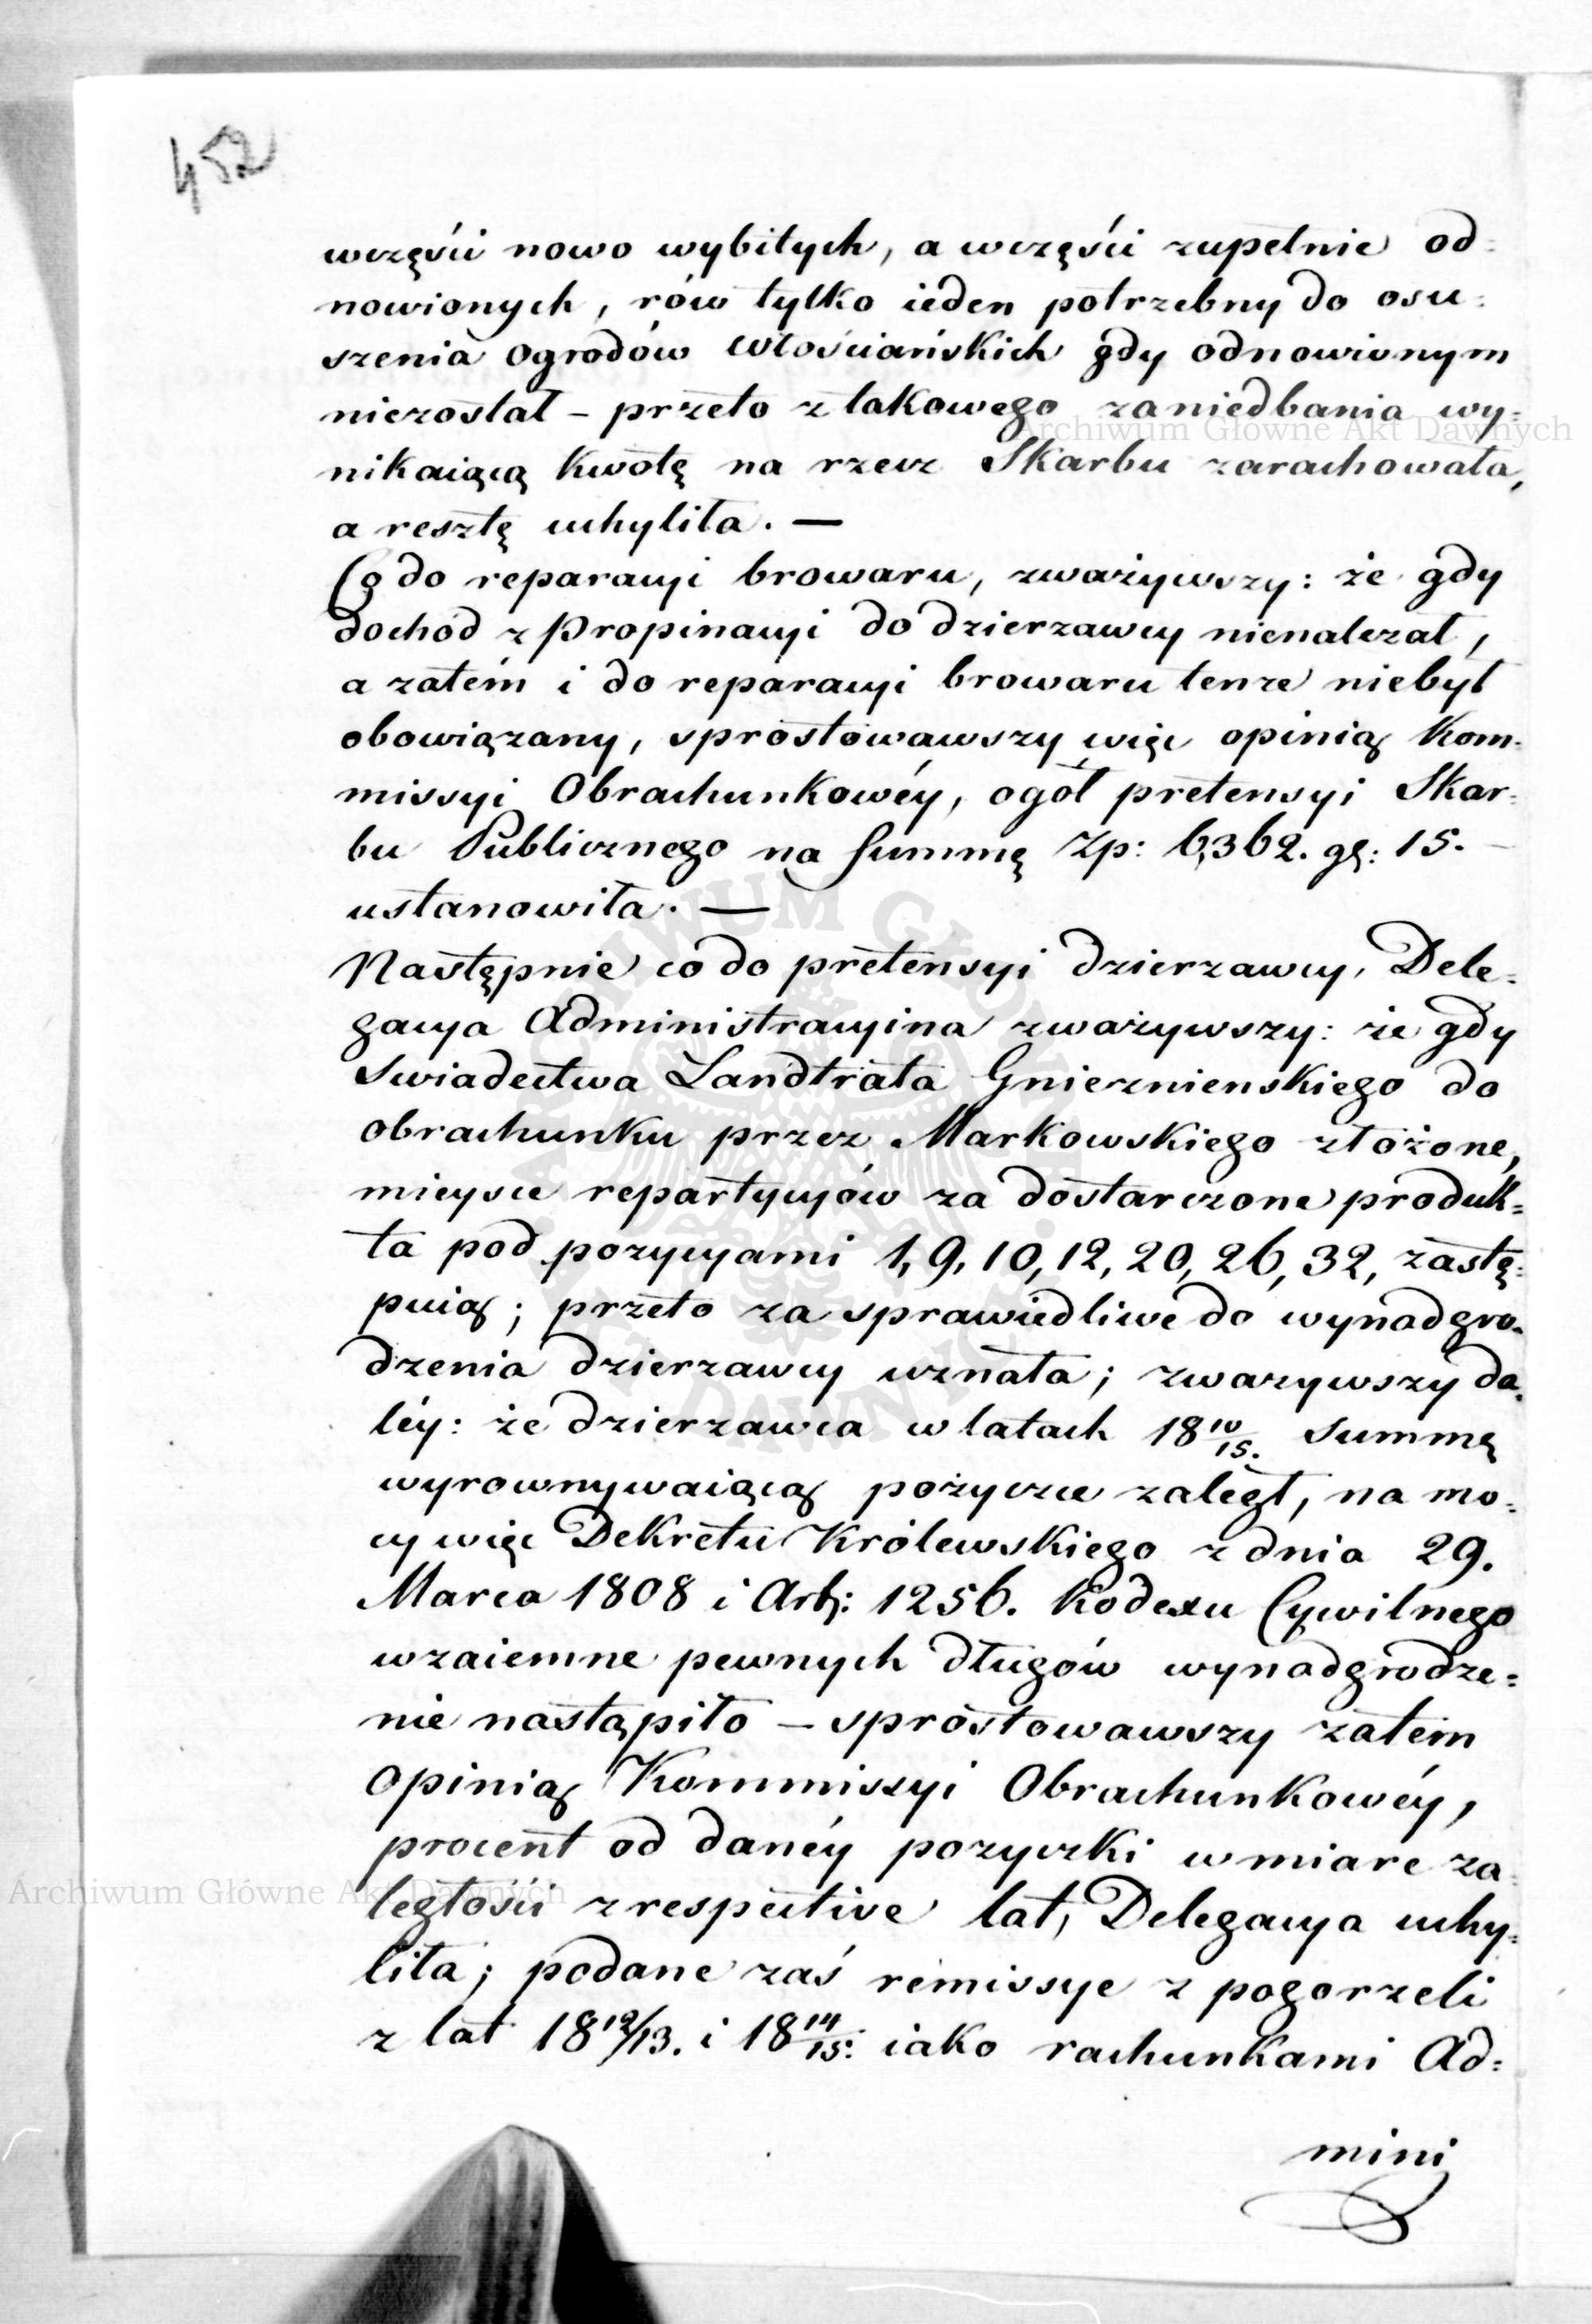 452
wczęści nowo wybitych, a wczęści zupełnie od=
nowionych, rów tylko ieden potrzebny do osu=
szenia ogrodów włościańskich gdy odnowionym
niezostał – przeto z takowego zaniedbania wy=
nikaiącą kwotę na rzecz Skarbu zarachowała,
a resztę uchyliła. —
Co do reparacyi browaru, zważywszy: że gdy
dochód z Propinacyi do dzierzawcy nienależał,
a zatém i do reparacyi browaru tenże niebył
obowiązany, sprostowawszy więc opinią Kom=
missyi Obrachunkowéy, ogół pretensyi Skar=
bu Publicznego na Summę Zp: 6,362. gr: 15.
ustanowiła. —
Następnie co do pretensyi dzierzawcy, Dele=
gacya Administracyina zważywszy: że gdy
Swiadectwa Landtrata Gnieznienskiego do
obrachunku przez Markowskiego złożone,
mieysce repartycyów za dostarczone produk=
ta pod pozycyami 1, 9, 10, 12, 20, 26, 32, zastę=
puią; przeto za sprawiedliwe do wynadgro=
dzenia dzierzawcy uznała; zwazywszy da=
léy: że dzierzawca w latach 18 10/15. Summę
wyrownywaiącą pożyczce zaległ, na mo=
cy więc Dekretu Królewskiego z dnia 29.
Marca 1808 i Art: 1256. Kodexu Cywilnego
wzaiemne pewnych długów wynadgrodze=
nie nastąpiło – sprostowawszy zatem
opinią Kommissyi Obrachunkowéy,
procent od danéy pozyczki w miare za=
ległości z respective lat, Delegacya uchy=
liła; podane zaś remissye z pogorzeli
z lat 18 12/13. i 18 14/15. iako rachunkami Ad=
mini
Archiwum Główne Akt Dawnych
Archiwum Główne Akt Dawnych
ARCHIWUM GŁÓWNE AKT DAWNYCH